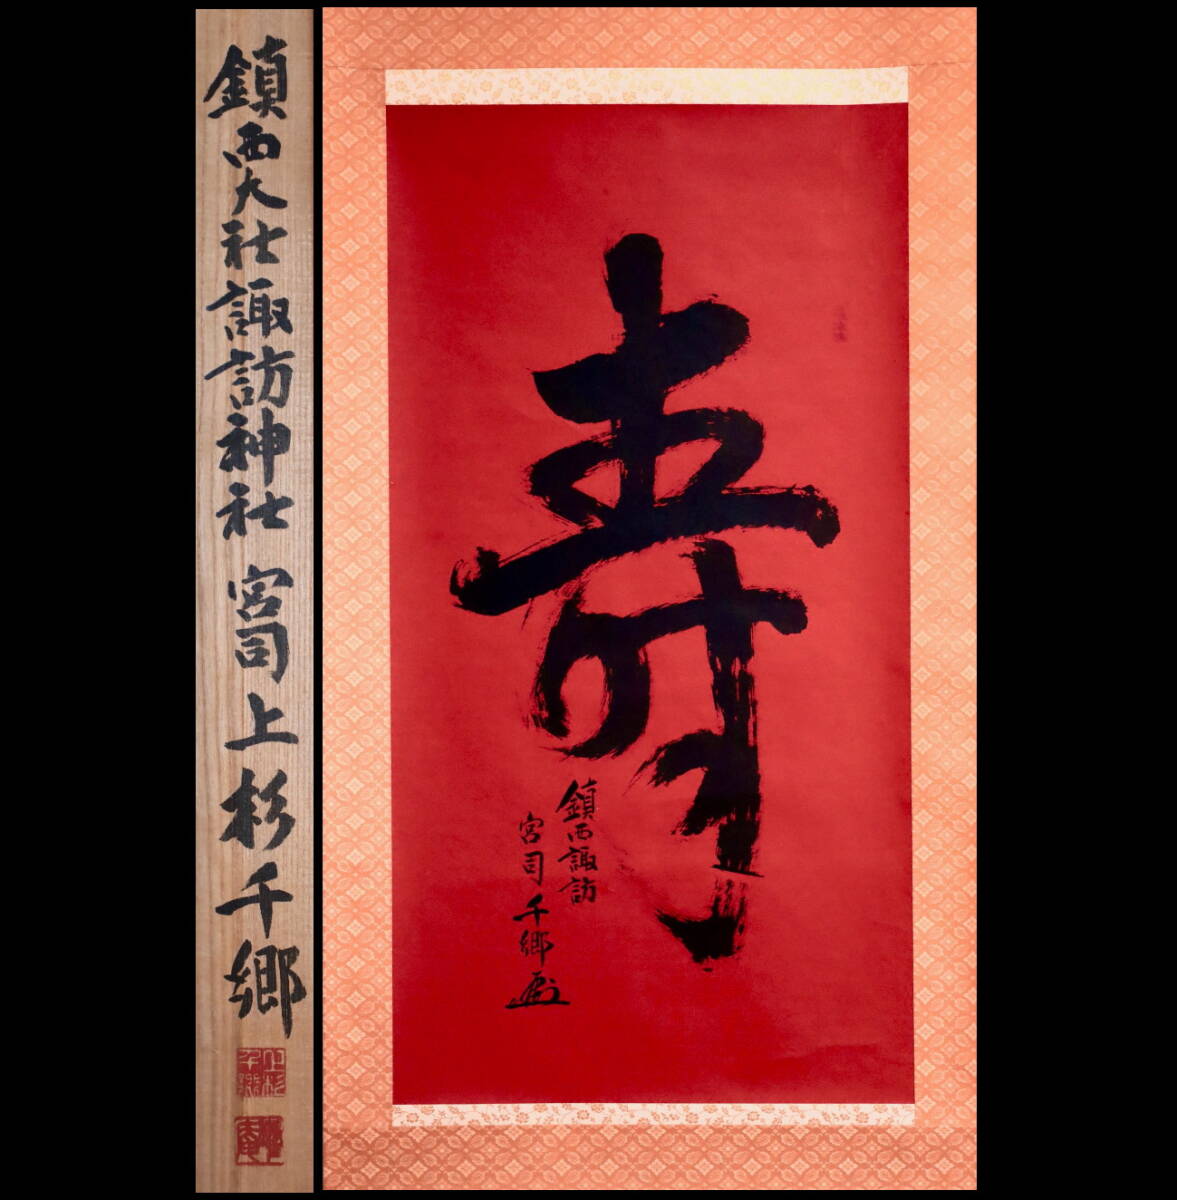 鎮西大社諏訪神社 宮司 上杉千郷
上杉千郷
寿
鎮西諏訪
宮司千郷